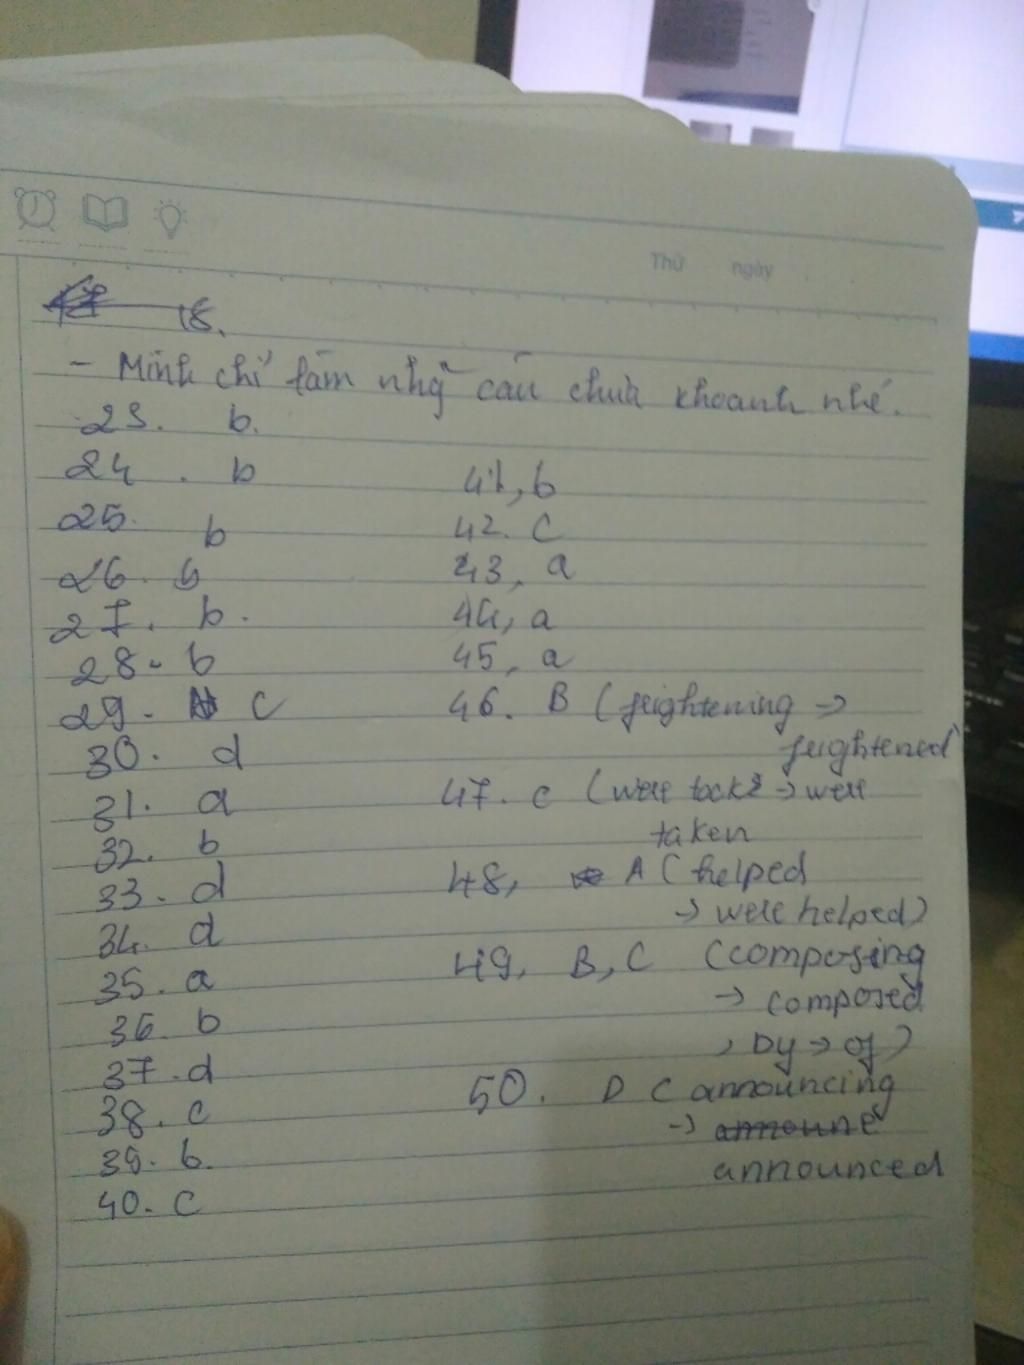 Thứ ngày
18.
- Mình chỉ làm nhg̃ câu chưa khoanh nhé.
23. b.
24. b
25. b
26. b
27. b.
28. b
29. c
30. d
31. a
32. b
33. d
34. d
35. a
36. b
37. d
38. c
39. b.
40. c
41, b
42. C
43, a
44, a
45, a
46. B (feightening →
feightened
47. c (were tock → were
taken
48, A (helped
→ were helped)
49, B, C (composing
→ composed
, by → of)
50. D (announcing
→
announced